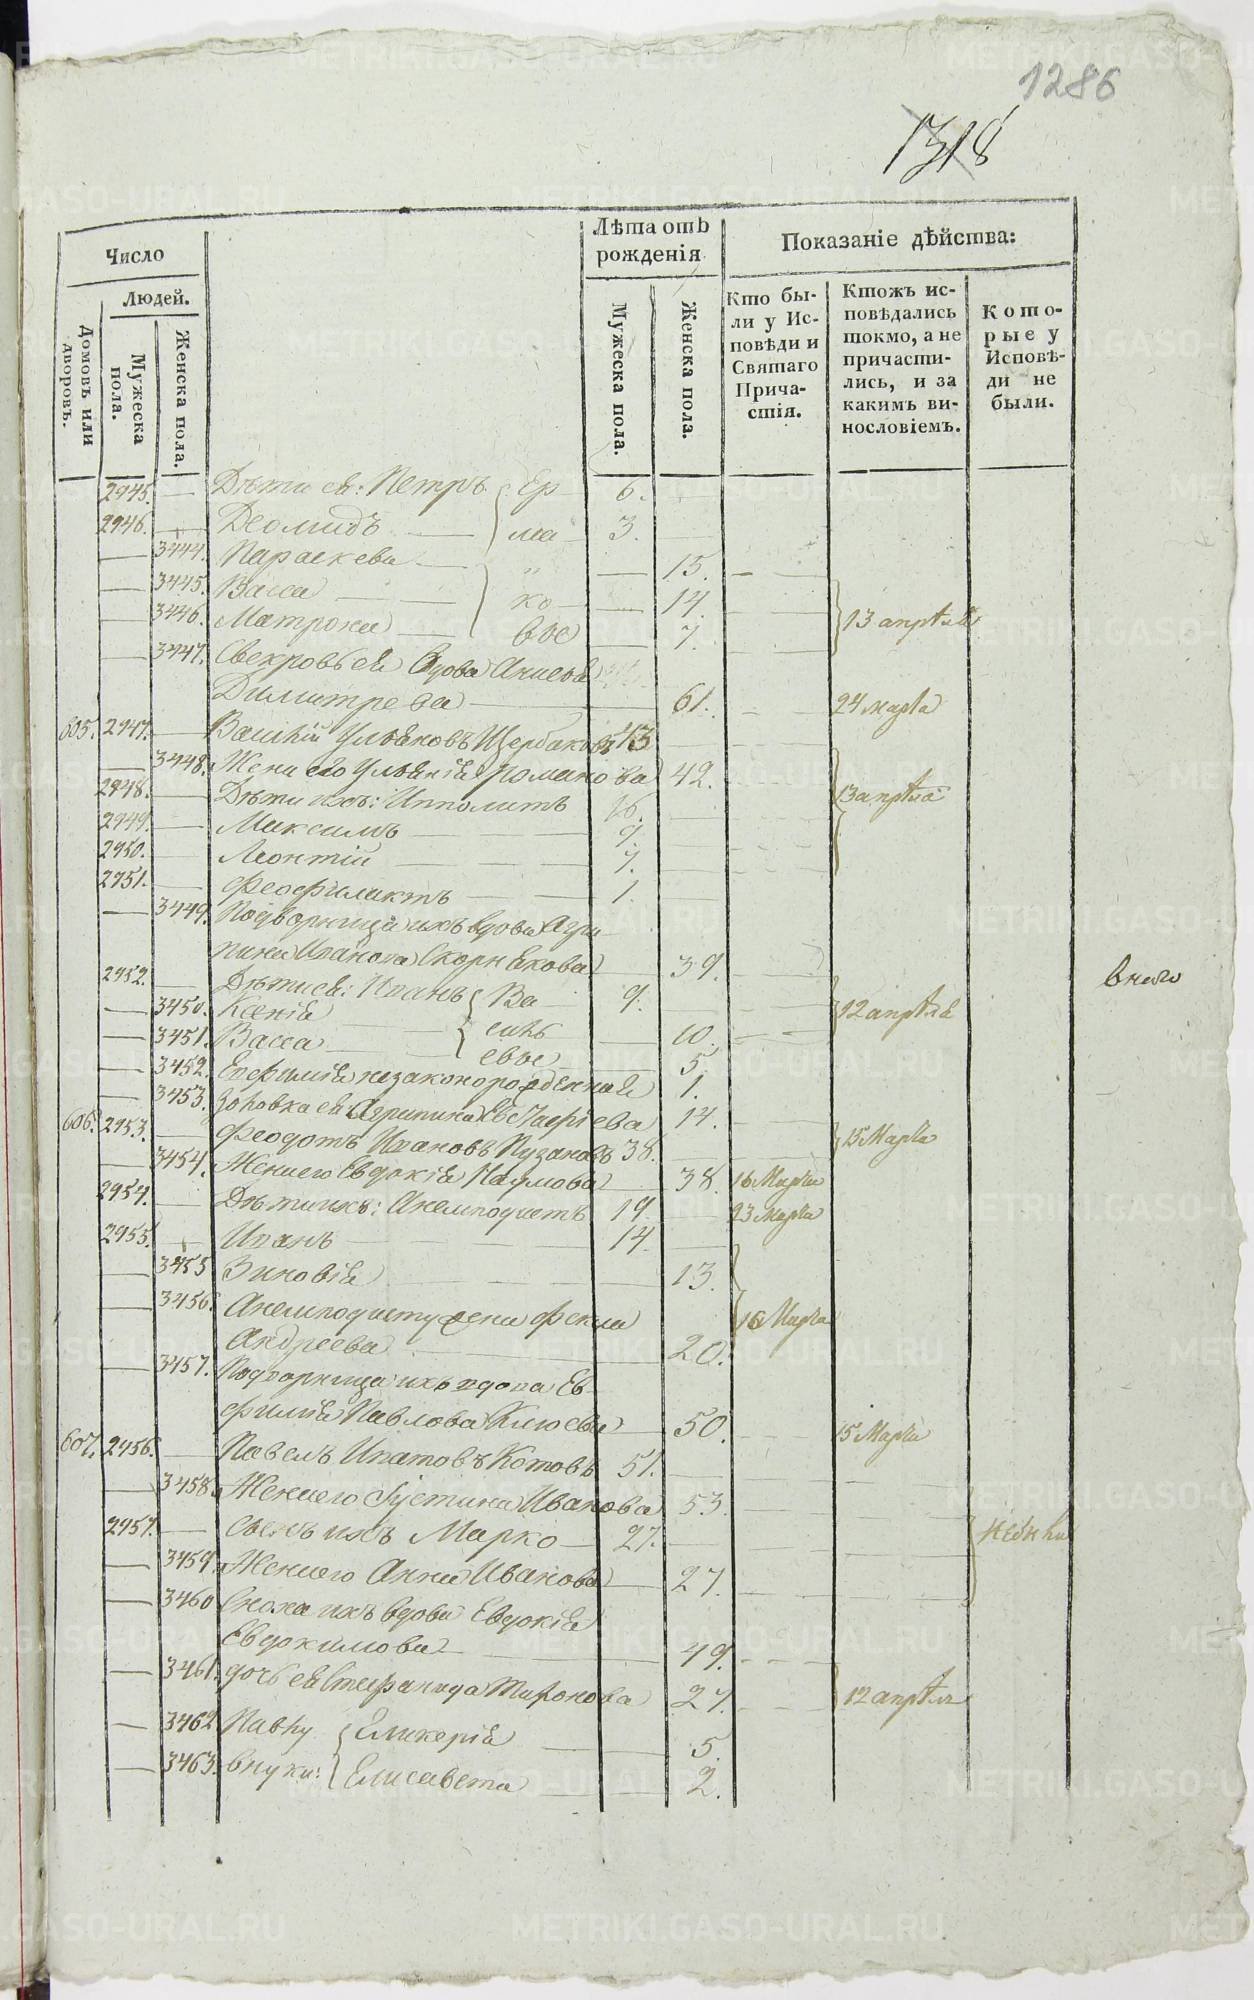 1286
1318
Число
Лѣта отъ рожденія
Показаніе дѣйства:
Людей.
Домовъ или дворовъ.
Мужеска пола.
Женска пола.
Мужеска пола.
Женска пола.
Кто были у Исповѣди и Святаго Причастія.
Ктожъ исповѣдались токмо, а не причастились, и за какимъ винословіемъ.
Которые у Исповѣди не были.
2945. Дѣти ея: Петръ Ер 6.
2946. Деомидъ ма 3.
3444. Параскева " 15.
3445. Васса ко 14.
3446. Матрона вы 7. 13 апрѣля
3447. Свекровь ея Вдова Анисья
Димитрева 61. 24 марта
605. 2947. Василій Ульяновъ Щербаковъ 43
3448. Жена его Ульянія Романова 42.
2948. Дѣти ихъ: Ипполитъ 16. 13 апрѣля
2949. Максимъ 9.
2950. Леонтій 7.
2951. Феофилактъ 1.
3449. Подворница ихъ вдова Агри
пина Иванова Скорнякова 39.
внего
2952. Дѣти ея: Иванъ Ва 9.
3450. Ксенія силь 10. 12 апрѣля
3451. Васса евы 5.
3452. Евфимія незаконорожденная 1.
3453. Золовка ея Агрипина Евстафіева 14.
606. 2953. Феодотъ Ивановъ Пузановъ 38. 15 Марта
3454. Жена его Евдокія Наумова 38. 16 Марта
2954. Дѣти ихъ: Анемподистъ 19. 23 марта
2955. Иванъ 14.
3455 Зиновія 13.
3456. Анемподиста жена Фекла 16 Марта
Андреева 20.
3457. Подворница ихъ вдова Ев
фимія Павлова Клюева 50. 15 Марта
607. 2956. Павелъ Ипатовъ Котовъ 51.
3458. Жена его Іустина Иванова 53.
2957. сынъ ихъ Марко 27. небыли
3459. Жена его Анна Иванова 27.
3460 Сноха ихъ вдова Евдокія
Евдокимова 49.
3461. дочь ея Стефанида Миронова 27. 12 апрѣля
3462 Павлу Гликерія 5.
3463. внуки: Елисавета 2.
METRIKI.GASO-URAL.RU